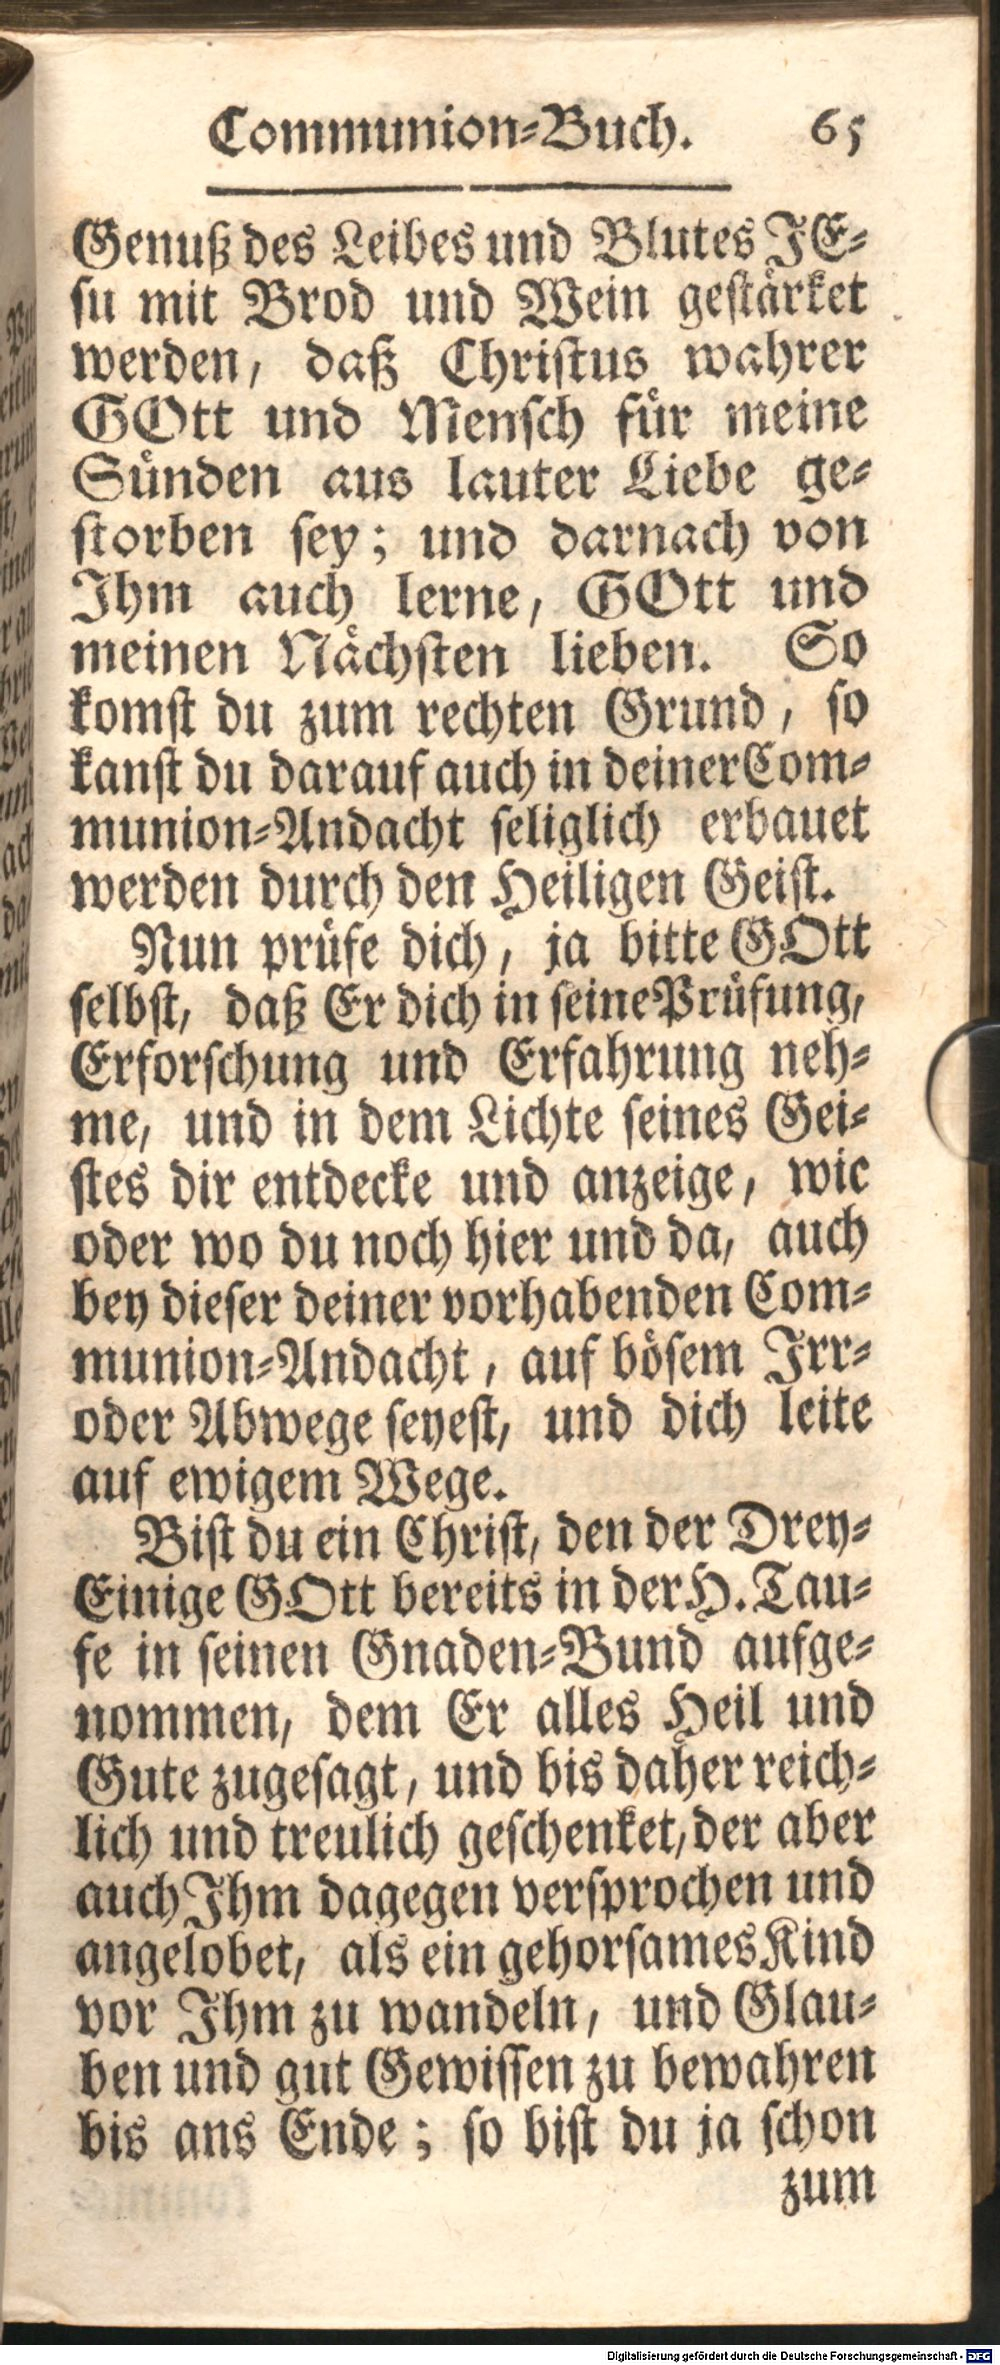 Communion-Buch. 65
Genuß des Leibes und Blutes JE-
su mit Brod und Wein gestärket
werden, daß Christus wahrer
GOtt und Mensch für meine
Sünden aus lauter Liebe ge-
storben sey; und darnach von
Ihm auch lerne, GOtt und
meinen Nächsten lieben. So
komst du zum rechten Grund, so
kanst du darauf auch in deiner Com-
munion-Andacht seliglich erbauet
werden durch den Heiligen Geist.
Nun prüfe dich, ja bitte GOtt
selbst, daß Er dich in seine Prüfung,
Erforschung und Erfahrung neh-
me, und in dem Lichte seines Gei-
stes dir entdecke und anzeige, wie
oder wo du noch hier und da, auch
bey dieser deiner vorhabenden Com-
munion-Andacht, auf bösem Irr-
oder Abwege seyest, und dich leite
auf ewigem Wege.
Bist du ein Christ, den der Drey-
Einige GOtt bereits in der H. Tau-
fe in seinen Gnaden-Bund aufge-
nommen, dem Er alles Heil und
Gute zugesagt, und bis daher reich-
lich und treulich geschenket, der aber
auch Ihm dagegen versprochen und
angelobet, als ein gehorsames Kind
vor Ihm zu wandeln, und Glau-
ben und gut Gewissen zu bewahren
bis ans Ende; so bist du ja schon
zum
Digitalisierung gefördert durch die Deutsche Forschungsgemeinschaft - DFG